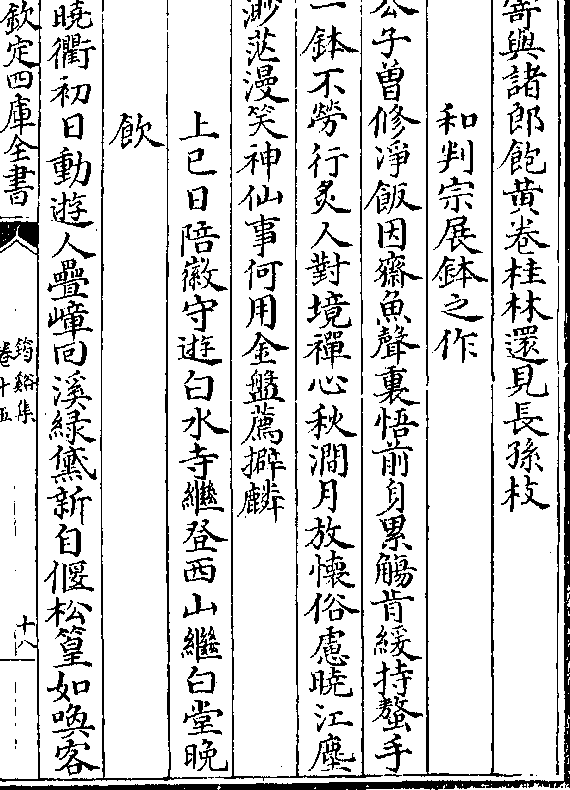 寄與諸郎飽黄卷桂林還見長孫枝
和判宗展鉢之作
公子曽修淨飯因齋魚聲裏悟前身累觴肯緩持螯手
一鉢不勞行炙人對境禪心秋澗月放懷俗慮曉江塵
渺茫漫笑神仙事何用金盤薦擗麟
上巳日陪徽守遊白水寺繼登西山繼白堂晚
飲
曉衢初日動遊人疊嶂囘溪緑黛新自偃松篁如喚客
欽定四庫全書
筠谿集
卷十五
十八